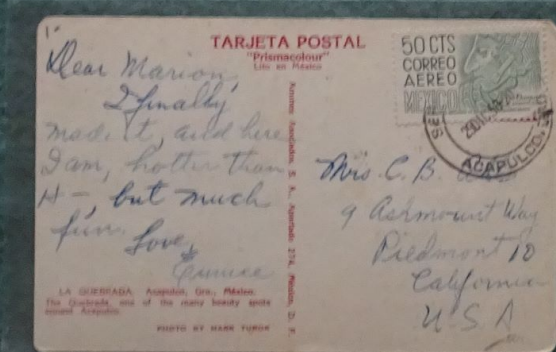 1.
TARJETA POSTAL
"Prismacolour"
Lito en México
50 CTS
CORREO
AEREO
MEXICO
ACAPULCO
Dear Marion,
I finally
made it, and here
I am, hotter than
H—, but much
fun.
Love,
Eunice
Mrs. C. B.
9 Ashmount Way
Piedmont 10
California
U.S.A
LA QUEBRADA. Acapulco, Gro., México.
The Quebrada, one of the many beauty spots
around Acapulco.
PHOTO BY MARK TUROK